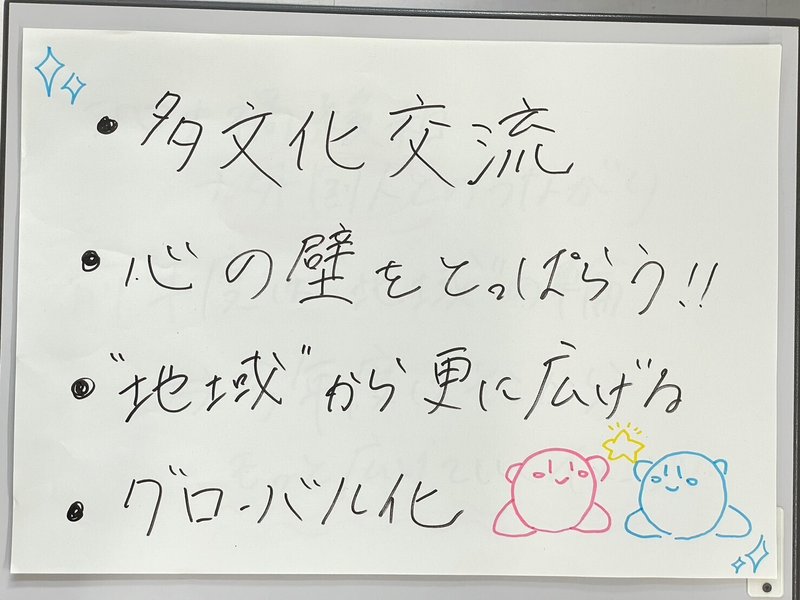 • 多文化交流
• 心の壁をとっぱらう!!
• "地域"から更に広げる
• グローバル化